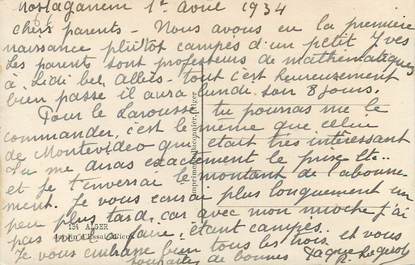 Mostaganem 1er avril 1934
chers parents - Nous avons eu la première
naissance plutôt campés d'un petit Yves
Les parents sont professeurs de mathématiques
à Sidi bel Abbès - tout c'est heureusement
bien passé il aura lundi son 8 jours.
Pour le Larousse tu pourras me le
commander, c'est le même que celui
de Montevideo qui était très intéressant
Tu me diras exactement le prix etc..
et je t'enverrai le montant de l'abonne
ment. Je vous écrirai plus longuement un
peu plus tard, car avec mon mioche j'ai
pas à faire, étant campés.
Je vous embrasse bien tous les trois et vous
souhaite de bonnes Pâques
154 ALGER